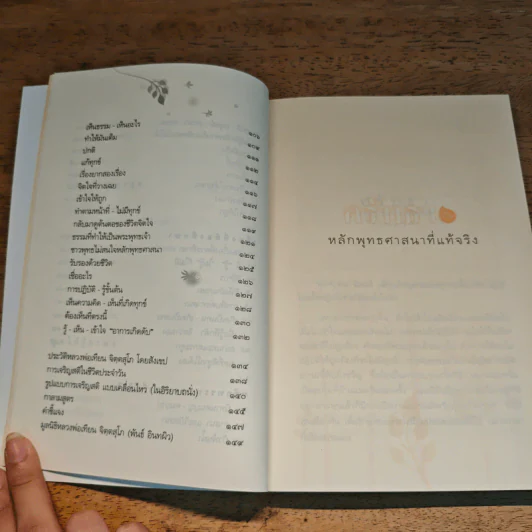 เห็นธรรม - เห็นอะไร ๑๐๖
ทำให้มันเต็ม ๑๐๗
ปกติ ๑๑๑
แก้ทุกข์ ๑๑๒
เรื่องยากสองเรื่อง ๑๑๔
จิตใจที่วางเฉย ๑๑๖
เข้าใจให้ถูก ๑๑๗
ทำตามหน้าที่ - ไม่มีทุกข์ ๑๑๘
กลับมาดูต้นตอของชีวิตจิตใจ ๑๑๙
ธรรมที่ทำให้เป็นพระพุทธเจ้า ๑๒๑
ชาวพุทธไม่สนใจหลักพุทธศาสนา ๑๒๔
รับรองด้วยชีวิต ๑๒๕
เชื่ออะไร ๑๒๖
การปฏิบัติ - รู้ขั้นต้น ๑๒๗
เห็นความคิด - เห็นที่เกิดทุกข์ ๑๒๘
ต้องเห็นที่ตรงนี้ ๑๓๐
รู้ - เห็น - เข้าใจ "อาการเกิดดับ" ๑๓๒
ประวัติหลวงพ่อเทียน จิตฺตสุโภ โดยสังเขป ๑๓๔
การเจริญสติในชีวิตประจำวัน ๑๓๘
รูปแบบการเจริญสติ แบบเคลื่อนไหว (ในอิริยาบถนั่ง) ๑๔๐
กาลามสูตร ๑๔๕
คำชี้แจง ๑๔๗
มูลนิธิหลวงพ่อเทียน จิตฺตสุโภ (พันธ์ อินทผิว) ๑๔๙
หลักพุทธศาสนาที่แท้จริง